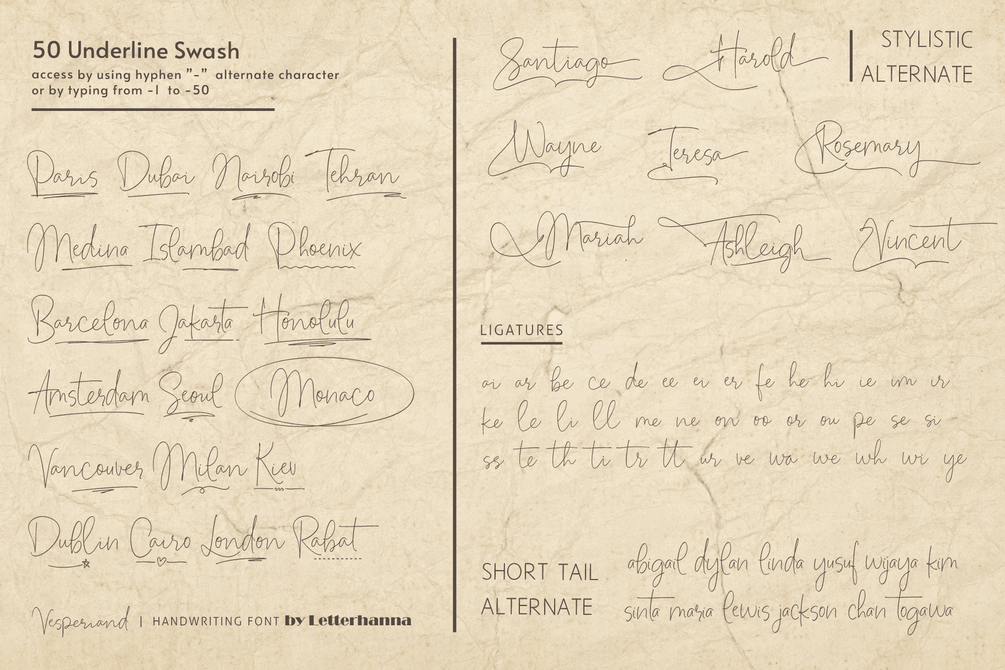 50 Underline Swash
access by using hyphen "-" alternate character
or by typing from -1 to -50
Paris Dubai Nairobi Tehran
Medina Islambad Phoenix
Barcelona Jakarta Honolulu
Amsterdam Seoul Monaco
Vancouver Milan Kiev
Dublin Cairo London Rabat
Vesperiand | HANDWRITING FONT by Letterhanna
Santiago Harold
STYLISTIC
ALTERNATE
Wayne Teresa Rosemary
Mariah Ashleigh Vincent
LIGATURES
ai ar be ce de ee ei er fe he hi ie im ir
ke le li ll me ne on oo or ou pe se si
ss te th ti tr tt ur ve wa we wh wi ye
SHORT TAIL
ALTERNATE
abigail dylan linda yusuf wijaya kim
sinta maria lewis jackson chan togawa